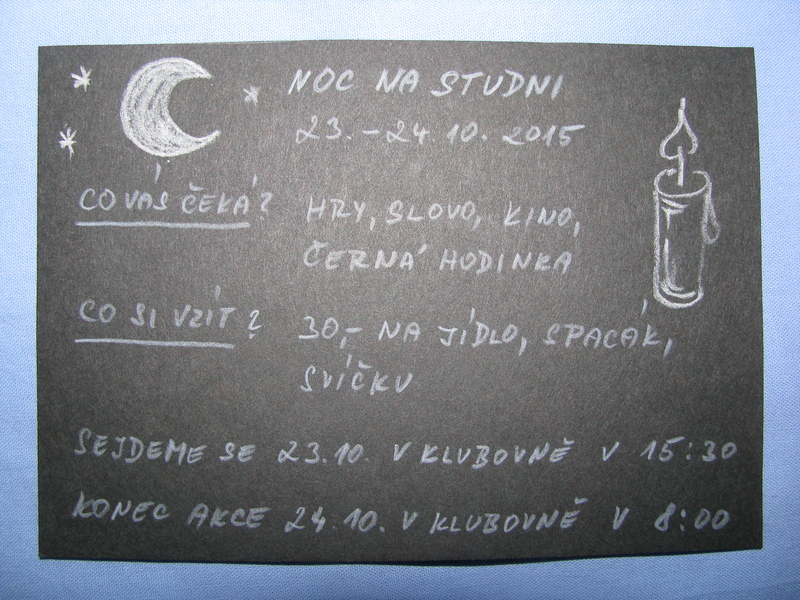 NOC NA STUDNI
23. – 24. 10. 2015
CO VÁS ČEKÁ? HRY, SLOVO, KINO,
ČERNÁ HODINKA
CO SI VZÍT? 30,- NA JÍDLO, SPACÁK,
SVÍČKU
SEJDEME SE 23.10. V KLUBOVNĚ V 15:30
KONEC AKCE 24.10. V KLUBOVNĚ V 8:00